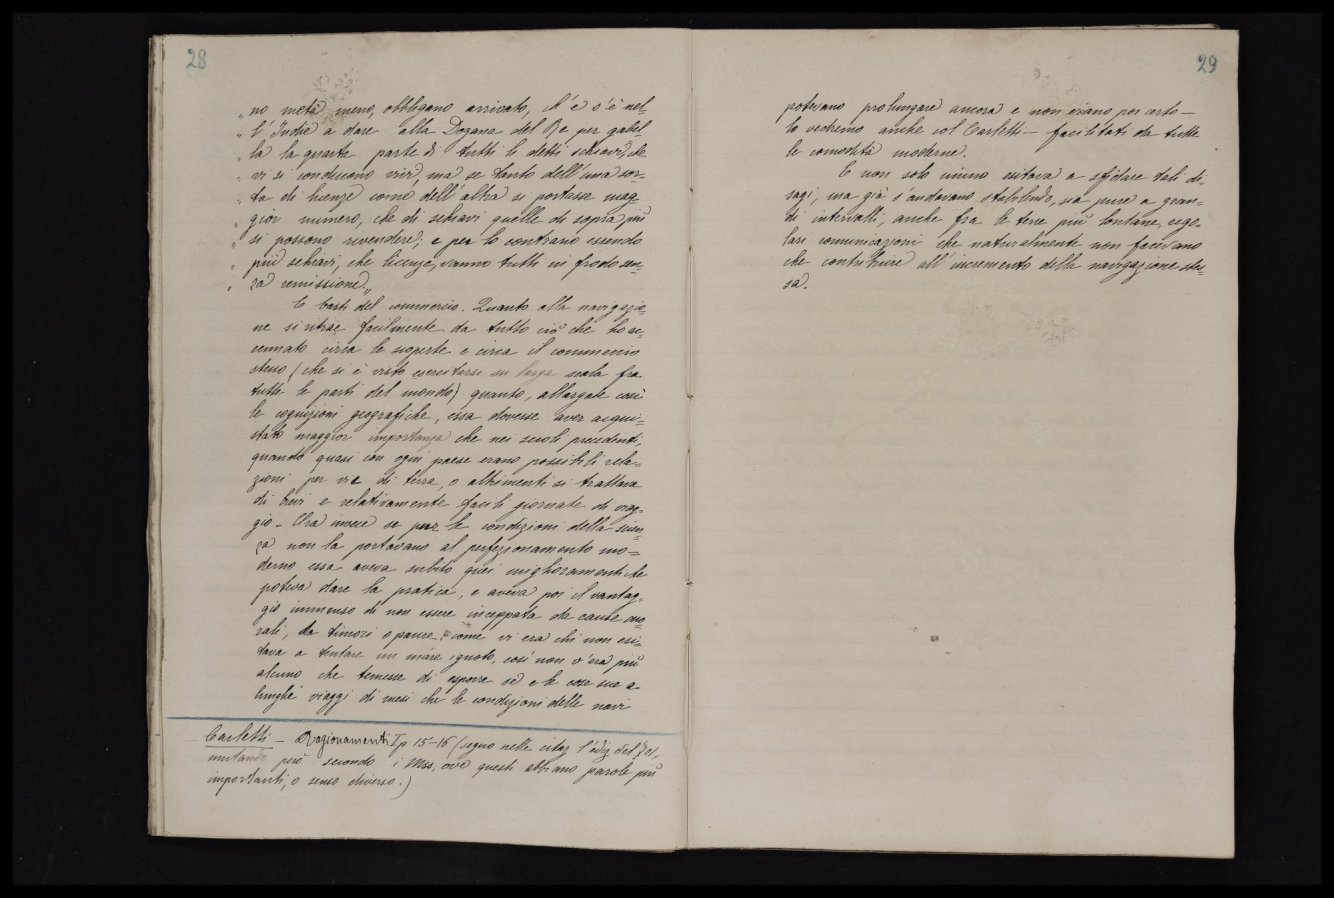 28
„ no metà meno, obbligano arrivato, ch'è s'è nel-
„ l'Indie a dare alla Dogana del Re per gabel
„ la la quarta parte di tutti li detti schiavi, che
„ vi si conducono vivi, ma se tanto dell'una sor-
„ ta di licenze come dell'altra si portasse mag
„ gior numero, che di schiavi, quelle di sopra più
„ si possono rivendere, e per lo contrario essendo
„ più schiavi, che licenze, vanno tutti in frodo sen-
„ za remissione„
E basti del commercio. Quanto alla navigazio=
ne si ritrae facilmente da tutto ciò che ho ac-
cennato circa le scoperte e circa il commercio
stesso (che si è visto esercitarsi su larga scala fra
tutte le parti del mondo) quanto, allargate così
le cognizioni geografiche, essa dovesse aver acqui=
stato maggior importanza che nei secoli precedenti,
quando quasi con ogni paese erano possibili rela=
zioni per via di terra, o altrimenti si trattava
di brevi e relativamente facili giornate di viag-
gio - Ora invece se pur le condizioni della scien
za non la portavano al perfezionamento mo=
derno essa aveva subito quei miglioramenti che
poteva dare la pratica, e aveva poi il vantag=
gio immenso di non essere inceppata da cause mo
rali, da timori o paure: come vi era chi non esi=
tava a tentare un mare ignoto, così non v'era più
alcuno che temesse di esporre sè e le cose sue a
lunghi viaggi di mesi che le condizioni delle navi
Carletti - Ragionamenti I p 15-16 (seguo nelle citaz l'ediz del 701,
mutando però secondo i Mss, ove questi abbiano parole più
importanti, o senso diverso.)
29
potevano prolungare ancora e non erano per certo -
lo vedremo anche col Carletti - facilitati da tutte
le comodità moderne.
E non solo niuno esitava a sfidare tali di=
sagi, ma già s'andavano stabilendo, sia pure a gran=
di intervalli, anche fra le terre più lontane, rego=
lari comunicazioni che naturalmente non facevano
che contribuire all'incremento della navigazione stes=
sa.